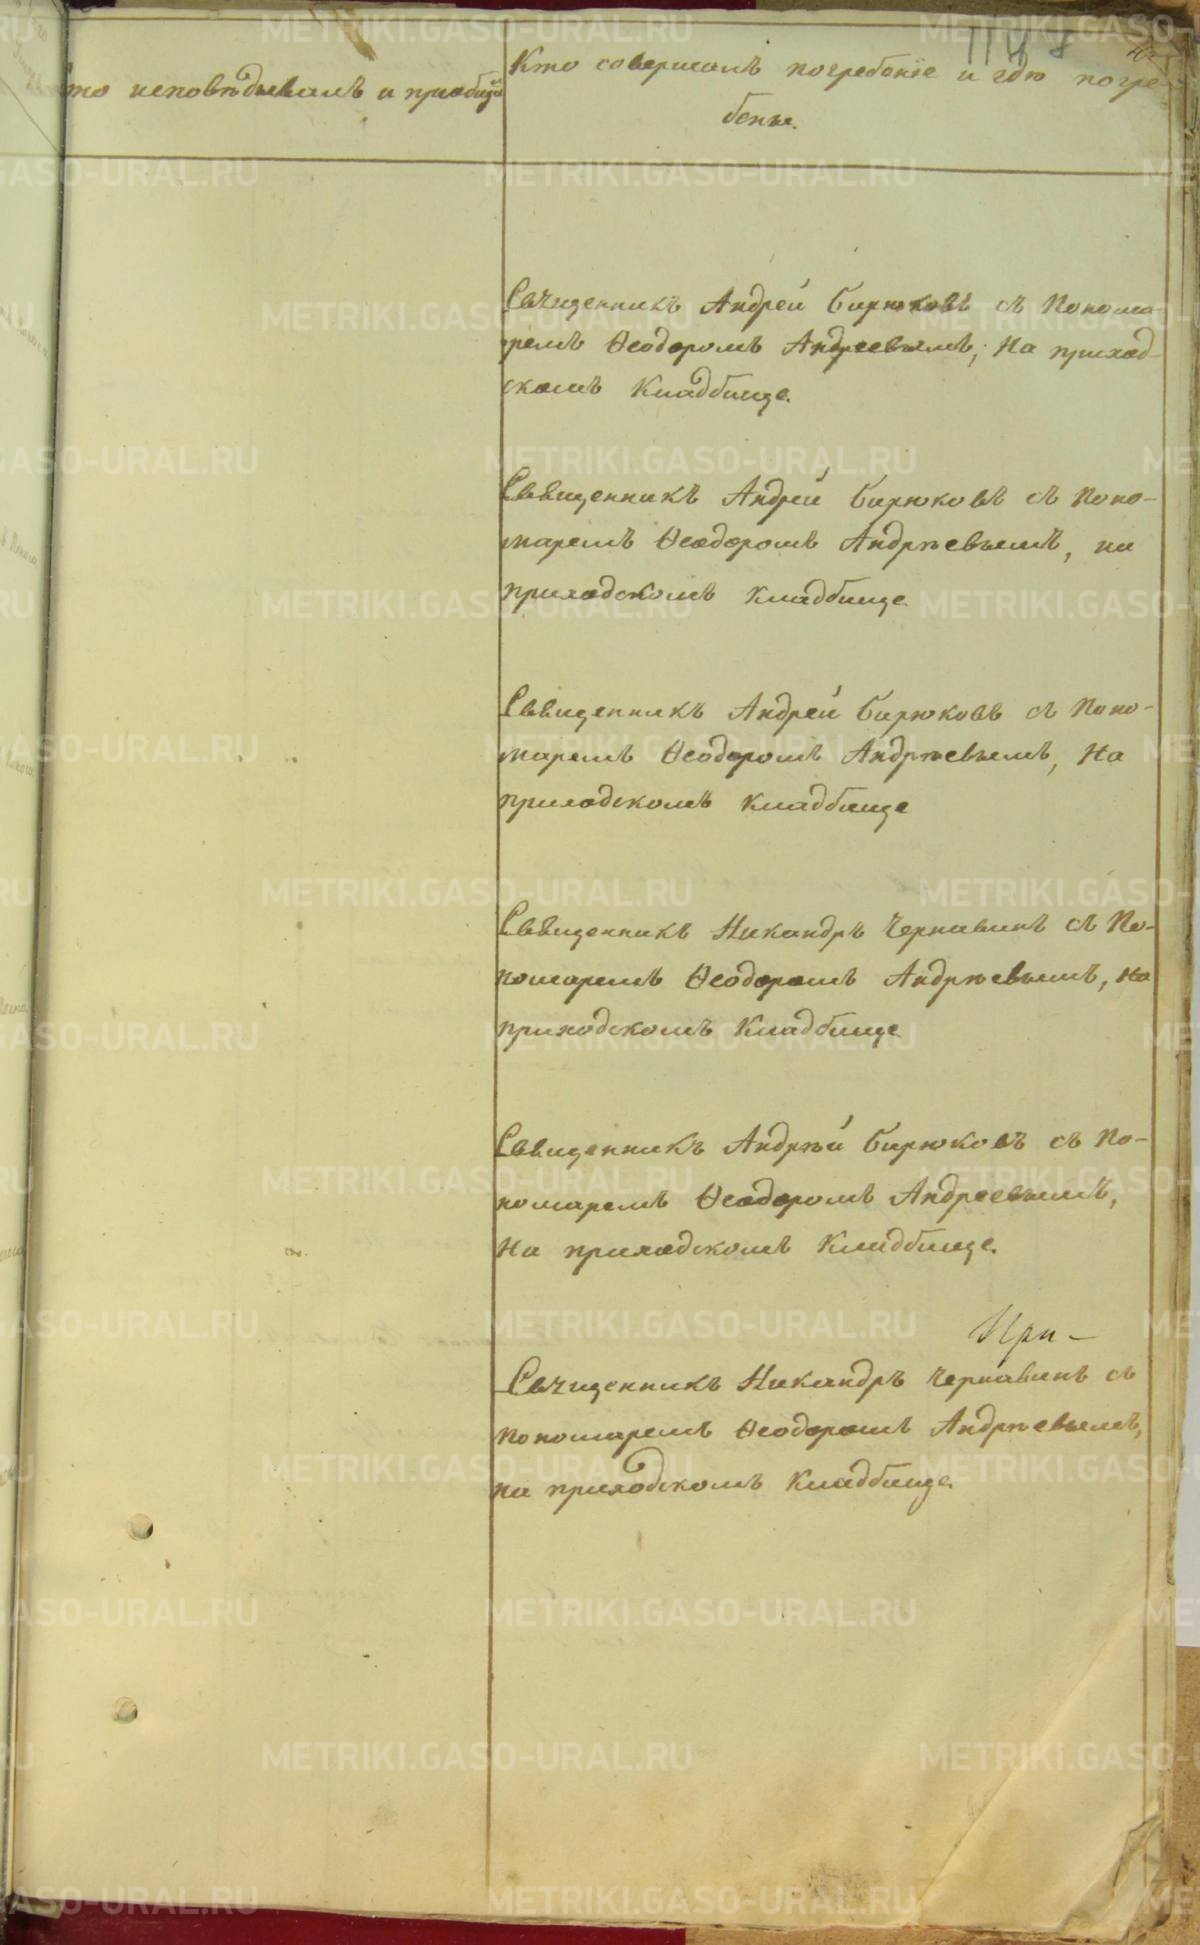 то исповѣдывалъ и приобщи
Кто совершалъ погребеніе и гдѣ погре
бены.
Священникъ Андрей Бирюковъ съ Понома
ремъ Ѳеодоромъ Андреевымъ, На приход-
скомъ Кладбище.
Священникъ Андрей Бирюковъ съ Поно-
маремъ Ѳеодоромъ Андрѣевымъ, на
приходскомъ Кладбище.
Священникъ Андрей Бирюковъ съ Поно-
маремъ Ѳеодоромъ Андрѣевымъ, На
приходскомъ Кладбище
Священникъ Никандръ Чернавинъ съ По-
номаремъ Ѳеодоромъ Андрѣевымъ, На
приходскомъ Кладбище
Священникъ Андрѣй Бирюковъ съ По-
номаремъ Ѳеодоромъ Андреевымъ,
На приходскомъ Кладбище.
При-
Священникъ Никандръ Чернавинъ съ
Пономаремъ Ѳеодоромъ Андрѣевымъ,
на приходскомъ Кладбище.
METRIKI.GASO-URAL.RU